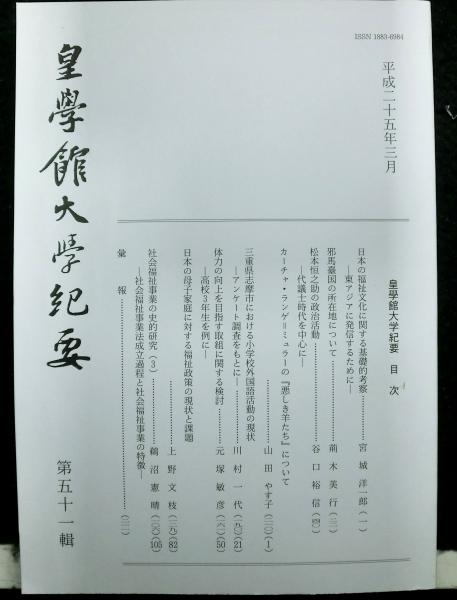 ISSN 1883-6984
平成二十五年三月
皇學館大学紀要　目　次
日本の福祉文化に関する基礎的考察…………宮　城　洋一郎（一）
―東アジアに発信するために―
邪馬臺国の所在地について…………荊　木　美　行
松本恒之助の政治活動…………谷　口　裕　信
―代議士時代を中心に―
カーチャ・ランゲ＝ミュラーの『悪しき羊たち』について
…………山　田　やす子（1）
三重県志摩市における小学校外国語活動の現状
―アンケート調査をもとに―…………川　村　一　代（21）
体力の向上を目指す取組に関する検討…………元　塚　敏　彦（50）
―高校3年生を例に―
日本の母子家庭に対する福祉政策の現状と課題
…………上　野　文　枝（82）
社会福祉事業の史的研究（3）…………鵜　沼　憲　晴（105）
―社会福祉事業法成立過程と社会福祉事業の特徴―
彙　報…………
皇學館大學紀要
第五十一輯